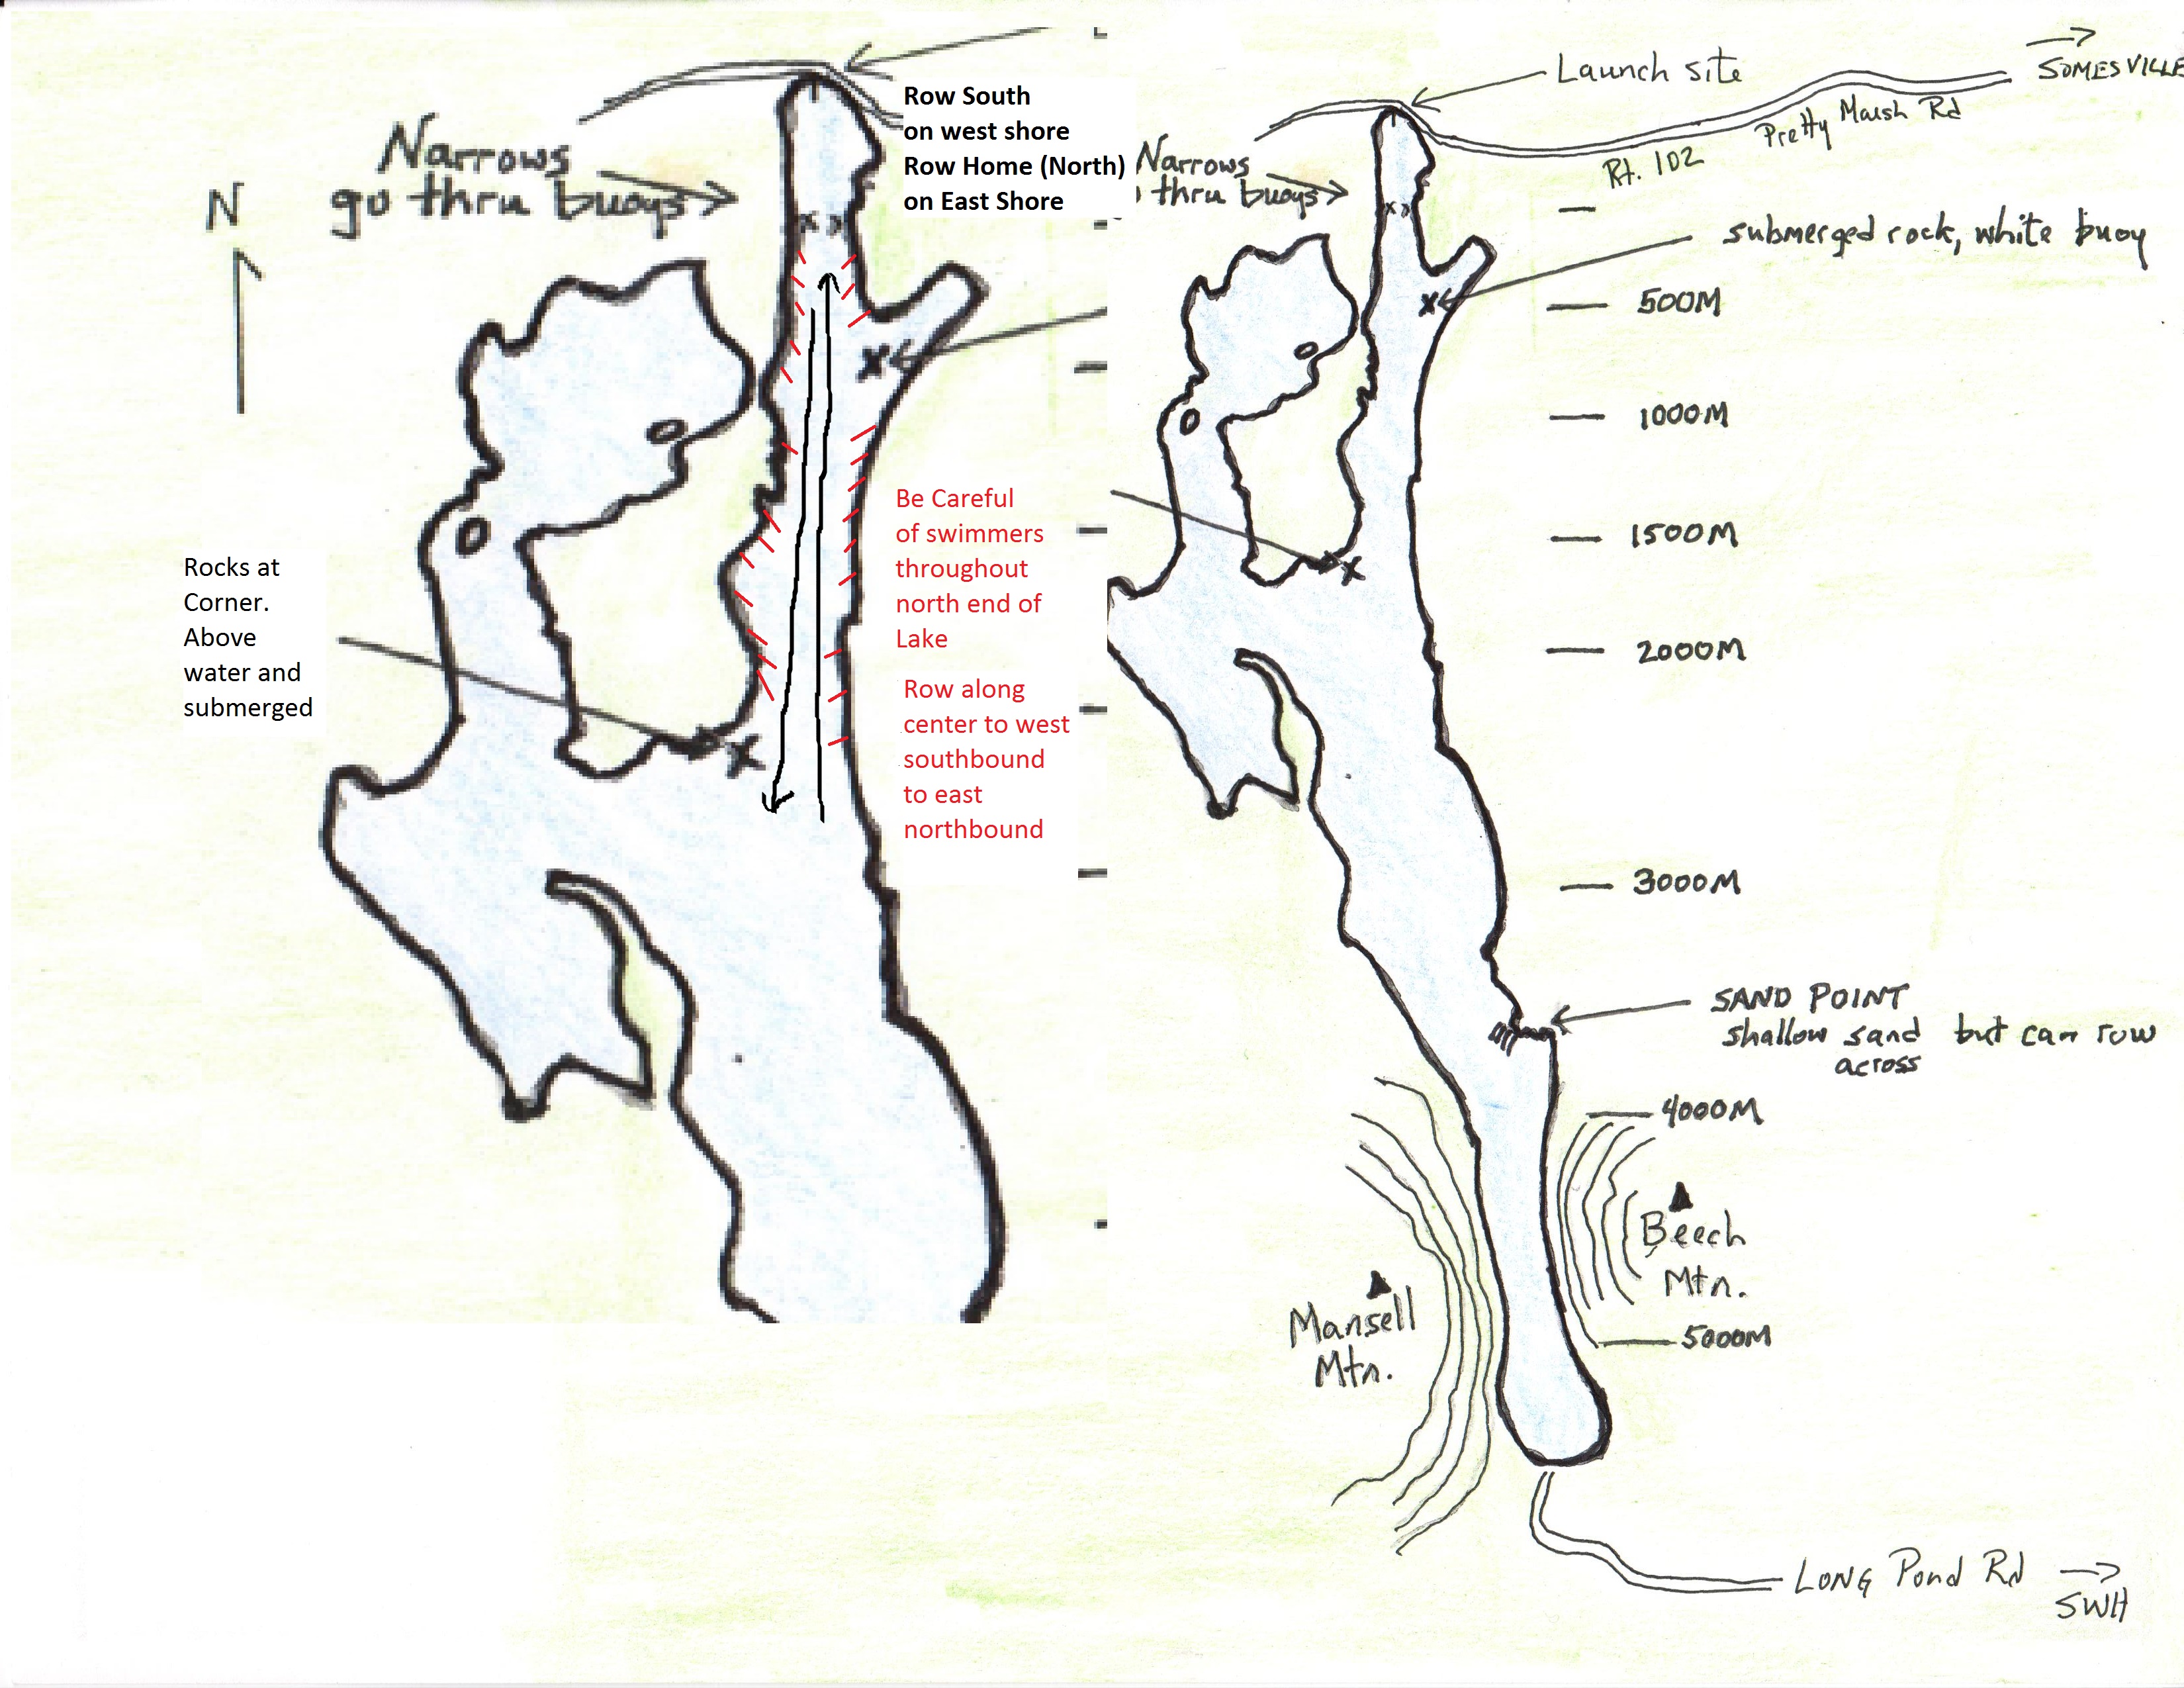 Launch site
SOMESVILLE
Pretty Marsh Rd
Rt. 102
Row South
on west shore
Row Home (North)
on East Shore
Narrows
go thru buoys
N
Narrows
thru buoys
submerged rock, white buoy
500M
1000M
1500M
2000M
3000M
Rocks at
Corner.
Above
water and
submerged
Be Careful
of swimmers
throughout
north end of
Lake
Row along
center to west
southbound
to east
northbound
SAND POINT
shallow sand but can row
across
4000M
Beech
Mtn.
Mansell
Mtn.
5000M
LONG Pond Rd
SWH